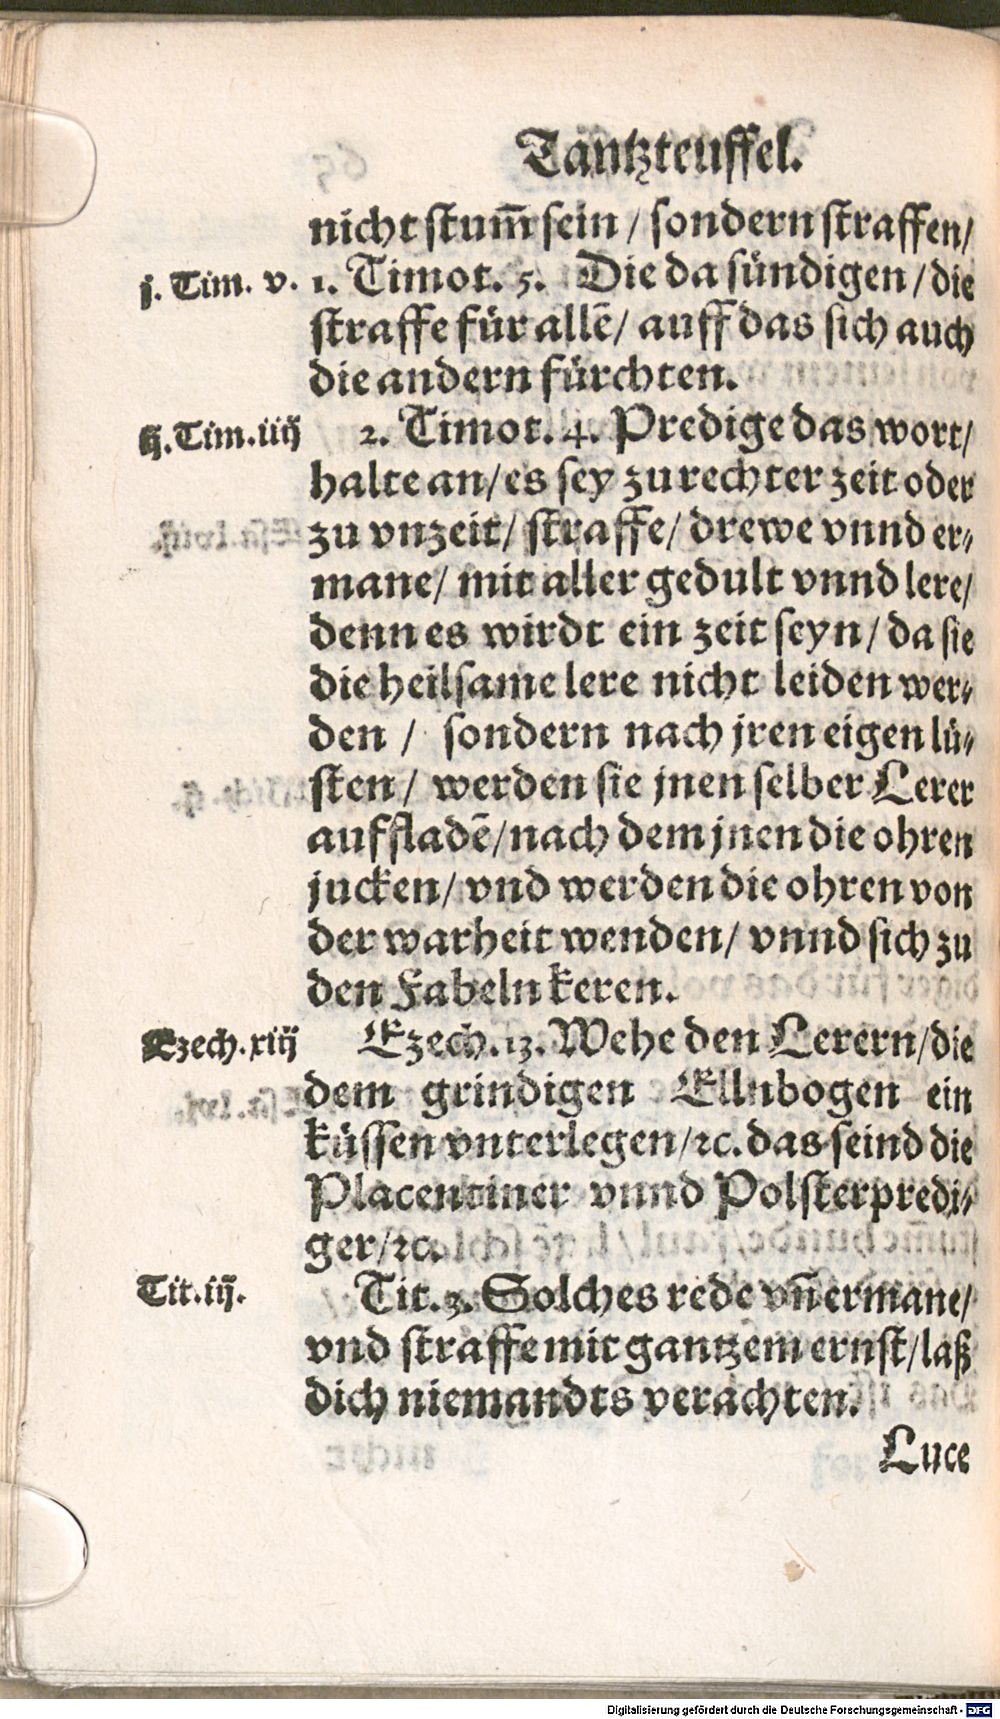 Tantzteuffel.
nicht stum̃ sein / sondern straffen/
j. Tim. v. 1. Timot. 5. Die da sündigen / die
straffe für allē/ auff das sich auch
die andern fürchten.
ij. Tim. iiij 2. Timot. 4. Predige das wort/
halte an/ es sey zu rechter zeit oder
zu vnzeit/ straffe/ drewe vnnd er-
mane/ mit aller gedult vnnd lere/
denn es wirdt ein zeit seyn/ da sie
die heilsame lere nicht leiden wer-
den / sondern nach jren eigen lü-
sten/ werden sie jnen selber Lerer
auffladē/ nach dem jnen die ohren
jucken/ vnd werden die ohren von
der warheit wenden/ vnnd sich zu
den Fabeln keren.
Ezech. xiij Ezech. 13. Wehe den Lerern/ die
dem grindigen Ellnbogen ein
küssen vnterlegen/ ꝛc. das seind die
Placentiner vnnd Polsterpredi-
ger/ ꝛc.
Tit. iij. Tit. 3. Solches rede vñ ermane/
vnd straffe mit gantzem ernst/ laß
dich niemandts verachten.
Luce
Digitalisierung gefördert durch die Deutsche Forschungsgemeinschaft - DFG